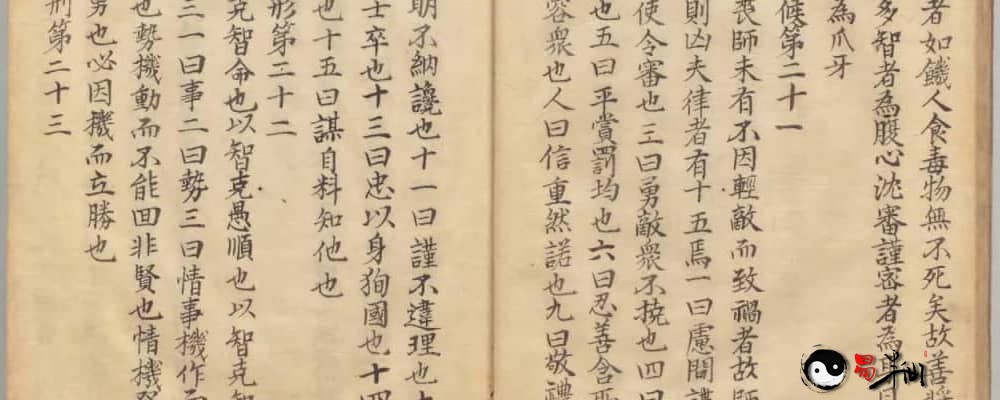 者如鐖人食毒物無不死矣故善將
多智者為腹心沈審謹密者為耳目
為爪牙
候第二十一
喪師未有不因輕敵而致禍者故師
則凶夫律者有十五焉一曰慮間諜
使令審也三曰勇敵衆不撓也四曰
也五曰平賞罰均也六曰忍善含
容衆也人曰信重然諾也九曰敬禮
明不納讒也十一曰謹不違理也十
士卒也十三曰忠以身狥國也十四
也十五曰謀自料知他也
形第二十二
克智命也以智克愚順也以智克智
三一曰事二曰勢三曰情事機作而
也勢機動而不能回非賢也情機發
勇也必因機而立勝也
刑第二十三
易